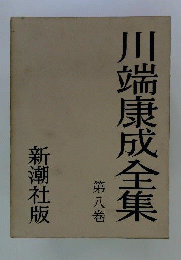 川端康成全集
第八巻
新潮社版